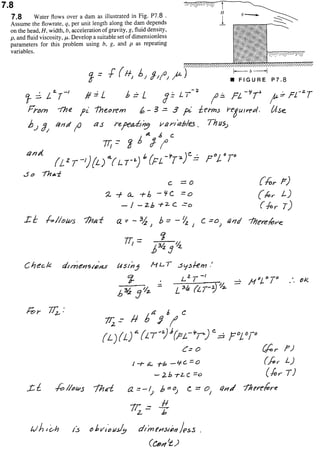 7.8
7.8 Water flows over a dam as illustrated in Fig. P7.8 .
Assume the flowrate, q, per unit length along the dam depends
on the head, H, width, b, acceleration of gravity, g, fluid density,
ρ, and fluid viscosity, μ. Develop a suitable set of dimensionless
parameters for this problem using b, g, and ρ as repeating
variables.
b
FIGURE P7.8
q = f (H, b, g, ρ, μ)
q ≐ L² T⁻¹ H ≐ L b ≐ L g ≐ LT⁻² ρ ≐ FL⁻⁴T² μ ≐ FL⁻²T
From the pi theorem 6 - 3 = 3 pi terms required. Use
b, g, and ρ as repeating variables. Thus,
π₁ = q bᵃ gᵇ ρᶜ
and
(L² T⁻¹)(L)ᵃ(LT⁻²)ᵇ(FL⁻⁴T²)ᶜ ≐ F⁰L⁰T⁰
so that
c = 0 (for F)
2 + a + b - 4c = 0 (for L)
-1 - 2b + 2c = 0 (for T)
It follows that a = -3/2, b = -1/2, c = 0, and therefore
π₁ = q / b^3/2 g^1/2
Check dimensions using MLT system:
q / b^3/2 g^1/2 ≐ L² T⁻¹ / L^3/2 (LT⁻²)^1/2 ≐ M⁰L⁰T⁰ ∴ OK
For π₂:
π₂ = H bᵃ gᵇ ρᶜ
(L)(L)ᵃ(LT⁻²)ᵇ(FL⁻⁴T²)ᶜ ≐ F⁰L⁰T⁰
c = 0 (for F)
1 + a + b - 4c = 0 (for L)
-2b + 2c = 0 (for T)
It follows that a = -1, b = 0, c = 0, and therefore
π₂ = H / b
which is obviously dimensionless.
(con't)